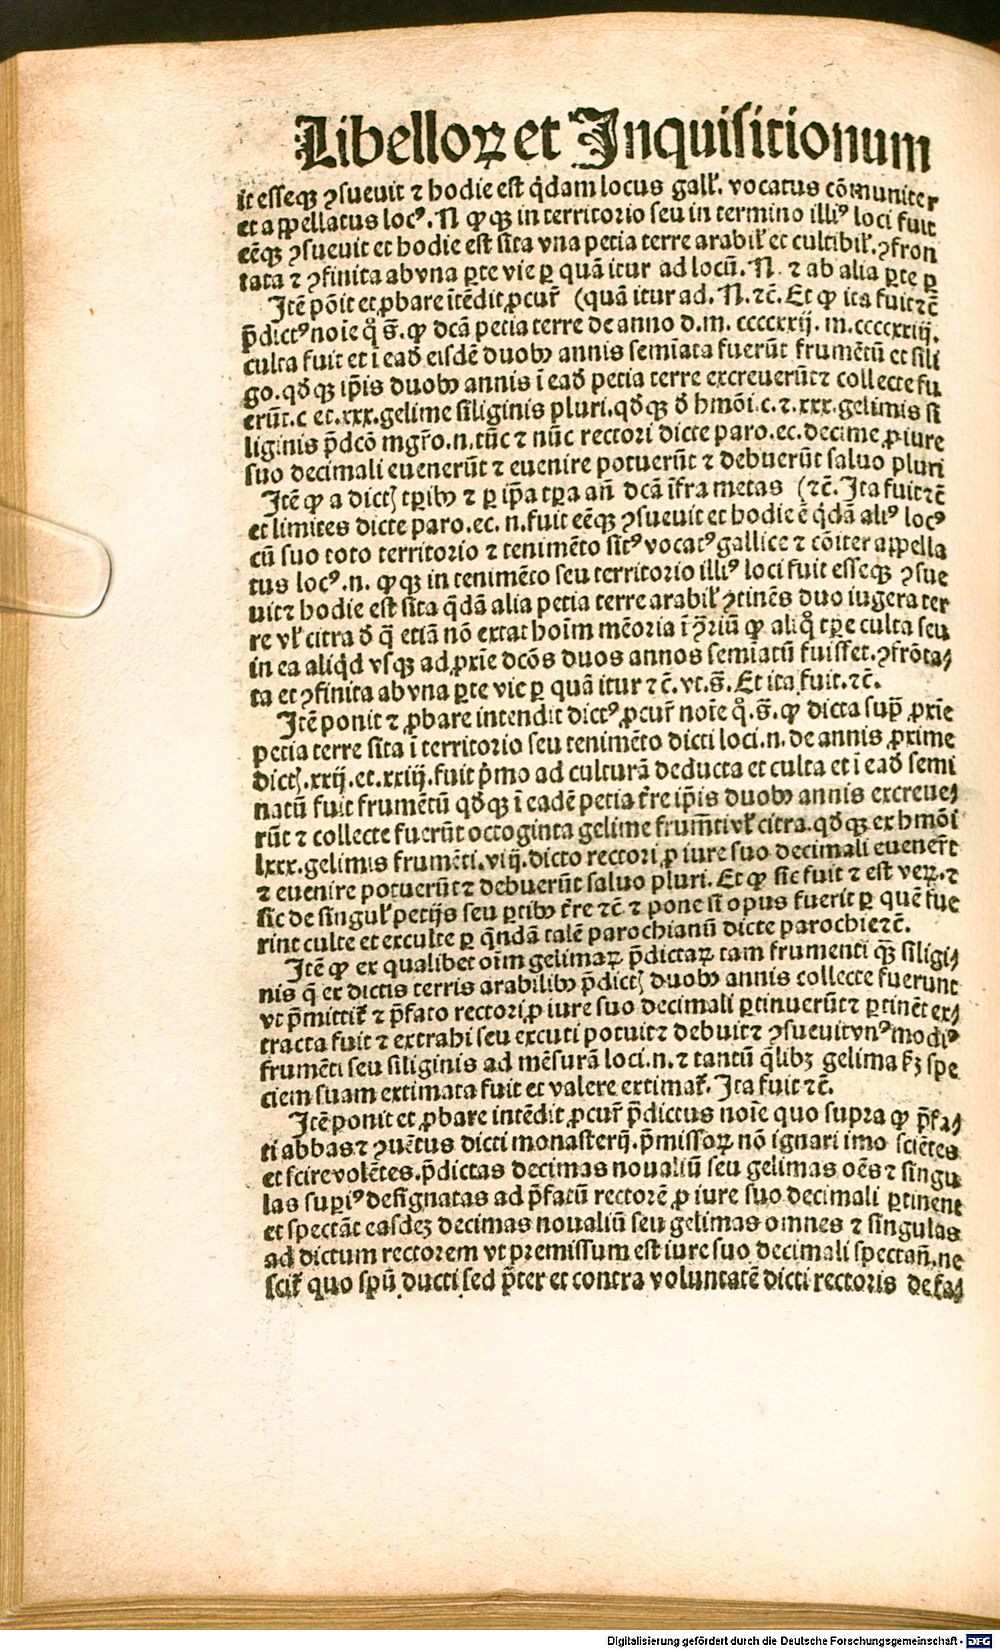 Libelloꝝ et Inquisitionum
it esseqꝫ ꝯsueuit ⁊ hodie est q̇dam locus gall'. vocatus cōmuniter
et appellatus locꝰ. N ꝙqꝫ in territorio seu in termino illiꝰ loci fuit
eēqꝫ ꝯsueuit et hodie est sita vna petia terre arabil' et cultibil'. ꝯfron
tata ⁊ ꝯfinita ab vna ꝑte vie ꝑ quā itur ad locū. N. ⁊ ab alia ꝑte ꝑ
Itē pōit et ꝓbare itēdit ꝓcur̄ (quā itur ad. N. ⁊c̄. Et ꝙ ita fuit ⁊c̄
p̄dictꝰ noīe q° s̄. ꝙ dcā petia terre de anno d.m. ccccxxij. m.ccccxxiij.
culta fuit et ī ead̄ eisdē duobꝫ annis semīata fuerūt frumētū et sili
go. qd̄qꝫ ip̄is duobꝫ annis ī ead̄ petia terre excreuerūt ⁊ collecte fu
erūt. c et. xxx. gelime siliginis pluri. qd̄qꝫ d̄ hmōi. c. ⁊. xxx. gelimis si
liginis p̄dcō mgr̄o. n. tūc ⁊ nūc rectori dicte paro. ec. decime ꝓ iure
suo decimali euenerūt ⁊ euenire potuerūt ⁊ debuerūt saluo pluri
Itē ꝙ a dictꝭ tꝑibꝫ ⁊ ꝑ ip̄a tꝑa an̄ dcā īfra metas (⁊c̄. Ita fuit ⁊c̄
et limites dicte paro. ec. n. fuit eēqꝫ ꝯsueuit et hodie ē q̇dā aliꝰ locꝰ
cū suo toto territorio ⁊ tenimēto sitꝰ vocatꝰ gallice ⁊ cōiter appella
tus locꝰ. n. ꝙqꝫ in tenimēto seu territorio illiꝰ loci fuit esseqꝫ ꝯsue
uit ⁊ hodie est sita q̄dā alia petia terre arabil' ꝯtinēs duo iugera ter
re vl' citra d̄ q̄ etiā nō extat hoīm mēoria ī ꝯriū ꝙ aliq° tꝑe culta seu
in ea aliq̇d vsqꝫ ad ꝓxīe dcōs duos annos semīatū fuisset. ꝯfrōta⸗
ta et ꝯfinita ab vna ꝑte vie ꝑ quā itur ⁊c̄. vt. s̄. Et ita fuit. ⁊c̄.
Itē ponit ⁊ ꝓbare intendit dictꝰ ꝓcur̄ noīe q°. s̄. ꝙ dicta sup̄ ꝓxīe
petia terre sita ī territorio seu tenimēto dicti loci. n. de annis ꝓxime
dictꝭ. xxij. et. xxiij. fuit ṗmo ad culturā deducta et culta et ī ead̄ semi
natū fuit frumētū qd̄qꝫ ī eadē petia t̄re ip̄is duobꝫ annis excreue⸗
rūt ⁊ collecte fuerūt octoginta gelime frum̄ti vl' citra. qd̄qꝫ ex hmōi
lxxx. gelimis frumēti. viij. dicto rectori ꝓ iure suo decimali euener̄t
⁊ euenire potuerūt ⁊ debuerūt saluo pluri. Et ꝙ sic fuit ⁊ est veꝝ. ⁊
sic de singul' petijs seu ꝑtibꝫ t̄re ⁊c̄ ⁊ pone si opus fuerit ꝑ quē fue
rint culte et exculte ꝑ q̄ndā talē parochianū dicte parochie ⁊c̄.
Itē ꝙ ex qualibet oīm gelimaꝝ p̄dictaꝝ tam frumenti qꝫ siligi⸗
nis q̄ ex dictis terris arabilibꝫ p̄dictꝭ duobꝫ annis collecte fuerunt
vt p̄mittit̄ ⁊ p̄fato rectori ꝓ iure suo decimali ꝑtinuerūt ⁊ ꝑtinēt ex⸗
tracta fuit ⁊ extrahi seu excuti potuit ⁊ debuit ⁊ ꝯsueuit vnꝰ modiꝰ
frumēti seu siliginis ad mēsurā loci. n. ⁊ tantū q̄libꝫ gelima ẜꝫ spe
ciem suam extimata fuit et valere extimat̄. Ita fuit ⁊c̄.
Itē ponit et ꝓbare intēdit ꝓcur̄ p̄dictus noīe quo supra ꝙ p̄fa⸗
ti abbas ⁊ ꝯuētus dicti monasterij. p̄missoꝝ nō ignari imo sciētes
et scire volētes. p̄dictas decimas noualiū seu gelimas oēs ⁊ singu
las suꝑiꝰ designatas ad p̄fatū rectorē ꝓ iure suo decimali ꝑtinent
et spectāt easdeꝫ decimas noualiū seu gelimas omnes ⁊ singulas
ad dictum rectorem vt premissum est iure suo decimali spectan̄. ne
scit̄ quo sp̄u ducti sed p̄ter et contra voluntatē dicti rectoris de fa⸗
Digitalisierung gefördert durch die Deutsche Forschungsgemeinschaft - DFG